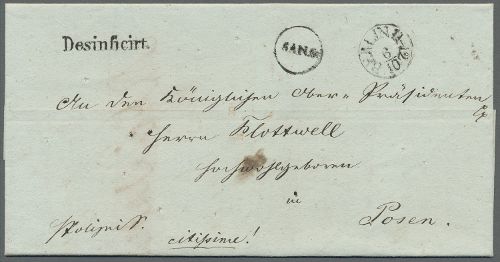 Desinficirt.
SAN.S.
BERLIN 11-12
6
10
An den Königlichen Ober-Präsidenten
Herrn Flottwell
Hochwohlgeboren
in
Posen.
citissime!